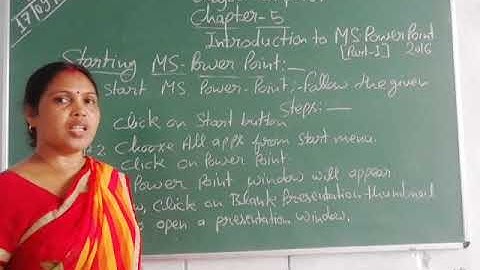 17/09/
Chapter-5
Introduction to MS PowerPoint
[Part-1] 2016
Starting MS-Power Point:-
Start MS Power-Point, follow the given
Steps:-
Click on Start button
2. Choose All apps from Start menu.
Click on Power Point
Power Point window will appear
Click on Blank Presentation thumbnail
open a presentation window.